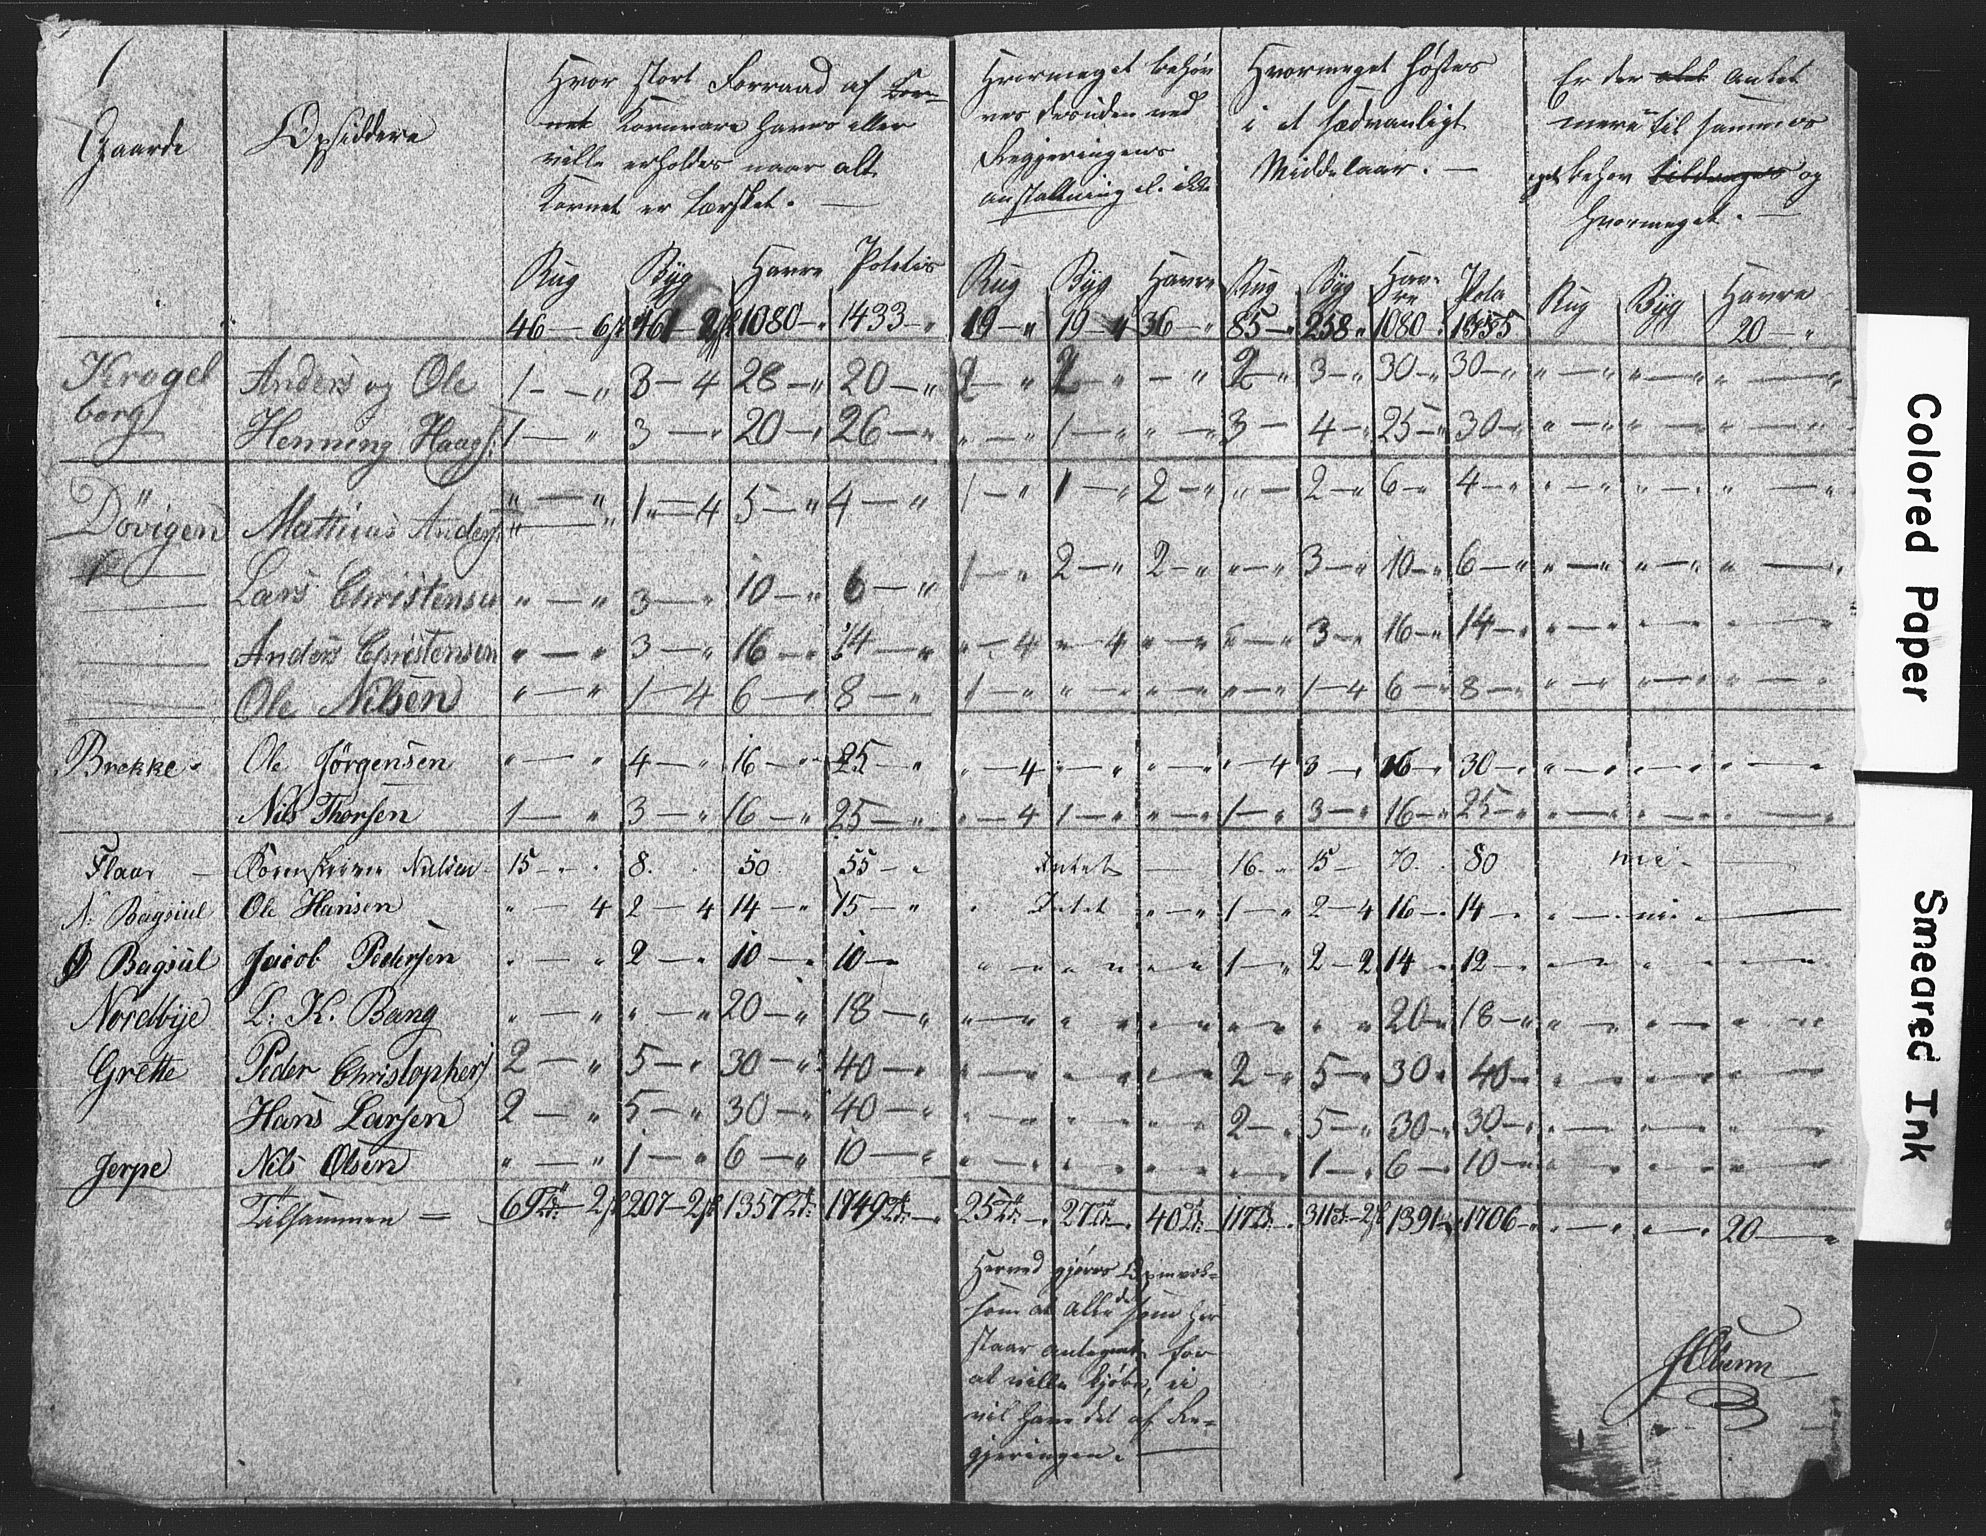 1
Gaarde
Opsiddere
Hvor stort Forraad af Kor-
net Kornvare haves eller
ville erholdes naar alt
Kornet er tærsket. —
Rug Byg Havre Potetes
Hvormeget behøv
nes desuden ved
Regjeringens
anstaltning el. ikke
Rug Byg Havre
Hvormeget høstes
i et sædvanligt
Middelaar. —
Rug Byg Hav-
re Pota
Er der alt antet
mere til sammes
behov og
hvormeget. —
Rug Byg Havre
46 — 6 461 2 1080 — " 1433 — " 19 — " 19 — " 36 — " 85 — " 258 " 1080 " 1885 20 — "
Krogel
borg
Anders og Ole 1 — " 3 — 4 28 — " 20 — " 2 — " 2 — " — " 2 — " 3 — " 30 — " 30 — " " — " " — " " — "
Henning Haags: 1 — " 3 — " 20 — " 26 — " " — " 1 — " " — " 3 — 4 — " 25 — " 30 — " " — " " — " " — "
Dövigen Mathias Anders: " — " 1 — 4 5 — " 4 — " 1 — " 1 — " 2 — " " — 2 — " 6 — " 4 — " " — " " — " " — "
Lars Christensen " — " 3 — " 10 — " 6 — " 1 — " 2 — " 2 — " " — " 3 — " 10 — " 6 — " " — " " — " " — "
Anders Christensen " — " 3 — " 16 — " 14 — " " — 4 " — 4 " — " " — " 3 — " 16 — " 14 — " " — " " — " " — "
Ole Nilsen " — " 1 — 4 6 — " 8 — " 1 — " " — " " — " " — " 1 — 4 6 — " 8 — " " — " " — " " — "
Brekke Ole Jörgensen " — " 4 — " 16 — " 25 — " " — 4 " — " " — " " — 4 3 — " 16 — " 30 — " " — " " — " " — "
Nils Thorsen 1 — " 3 — " 16 — " 25 — " " — 4 1 — " " — " 1 — " 3 — " 16 — " 25 — " " — " " — " " — "
Flaar — Nielsen 15 — " 8. 50 55 — " Intet — 16 — " 15 — 70 . 80 nei —
N: Bagsiul Ole Hansen " — 4 2 — 4 14 — " 15 — " " Intet " — " 1 — " 2 — 4 16 — " 14 — " " — ni " —
Bagsiul Jacob Pedersen " — " 2 — " 10 — " 10 — " " — " " — " " — " 1 — " 2 — 2 14 — " 12 — " " — " " — " " — "
Nordbye L: K. Bang " — " " — " 20 — " 18 — " " — " " — " " — " " — " " — " 20 — " 18 — " " — " " — " " — "
Grette Peder Christophers: 2 — " 5 — " 30 — " 40 — " " — " " — " " — " 2 — " 5 — " 30 — " 40 — " " — " " — " " — "
Hans Larsen 2 — " 5 — " 30 — " 40 — " " — " " — " " — " 2 — " 5 — " 30 — " 30 — " " — " " — " " — "
Jerpe Nils Olsen " — " 1 — " 6 — " 10 — " " — " " — " " — " " — " 1 — " 6 — " 10 — " " — " " — " " — "
Tilsammen = 69 Td: — 2 207 — 2 1357 Td: 1749 Td: — " 25 Td: — " 27 Td: " 40 Td: 117 Td: " 311 Td: — 2 1391 " 1706 — " " — " " — " 20 — "
Herved gjöres Opmærk-
som at alle de som her
staar antegnet for
at ville kjöbe, ei
vil have det af Re-
gjeringen. —
Colored Paper
Smeared Ink